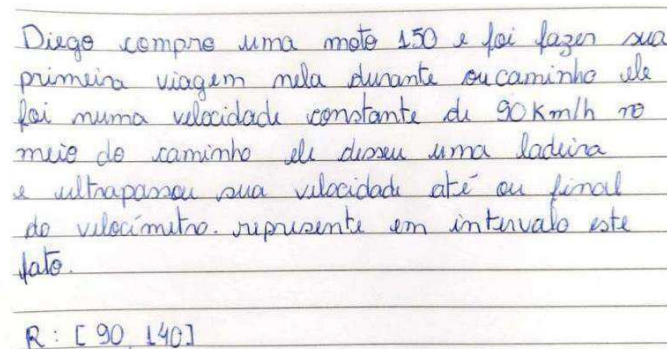 Diego compro uma moto 150 e foi fazer sua
primeira viagem nela durante ou caminho ele
foi numa velocidade constante de 90 Km/h no
meio do caminho ele desseu uma ladeira
e ultrapassou sua velocidade até ou final
do velocímetro. represente em intervalo este
fato.
R: [90, 140]